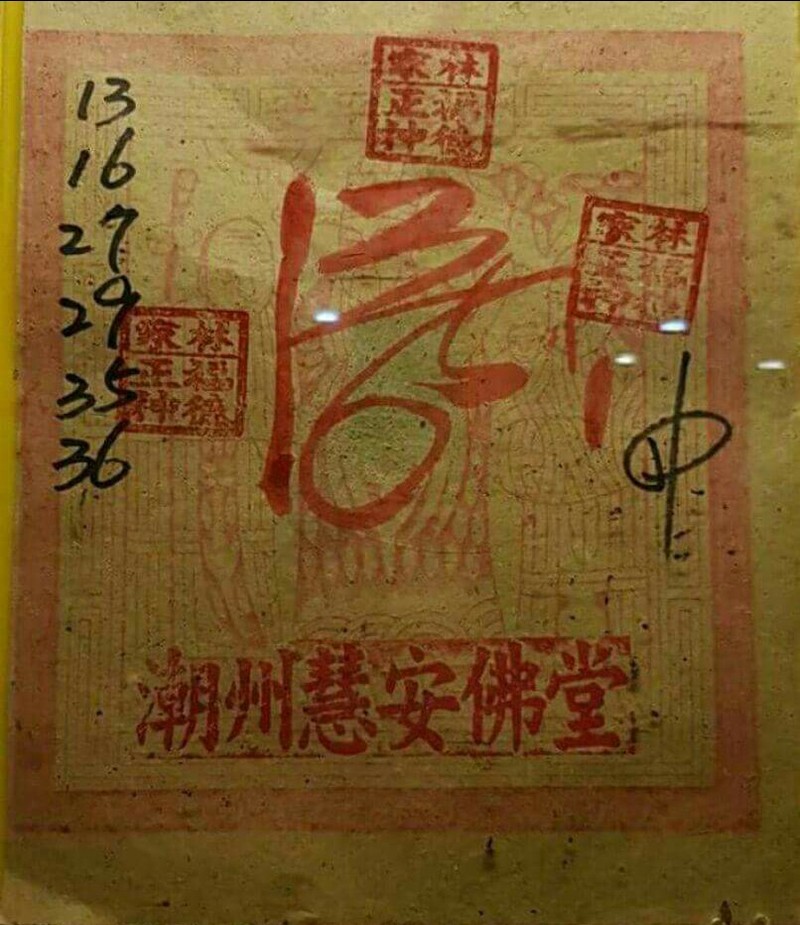 林家
福德
正神
林家
福德
正神
林家
福德
正神
13
16
27
29
35
36
潮州慧安佛堂